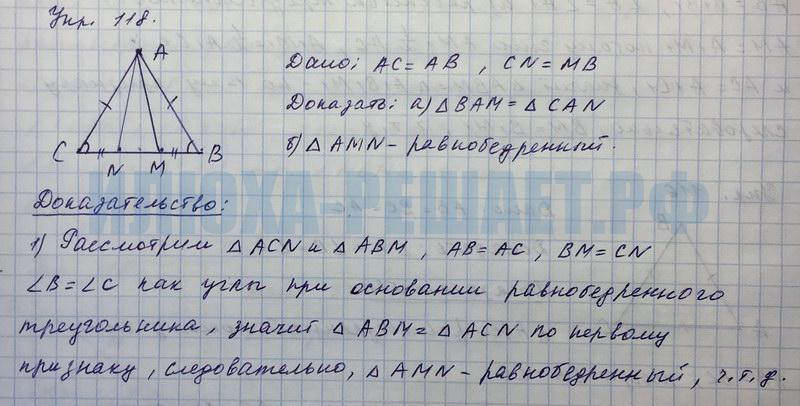 Упр. 118.
A
C
N
M
B
Дано: AC = AB , CN = MB
Доказать: а) △BAM = △CAN
б) △AMN - равнобедренный.
ИЛЮХА-РЕШАЕТ.РФ
Доказательство:
1) Рассмотрим △ACN и △ABM , AB = AC , BM = CN
∠B = ∠C как углы при основании равнобедренного
треугольника, значит △ABM = △ACN по первому
признаку, следовательно, △AMN - равнобедренный, ч.т.д.